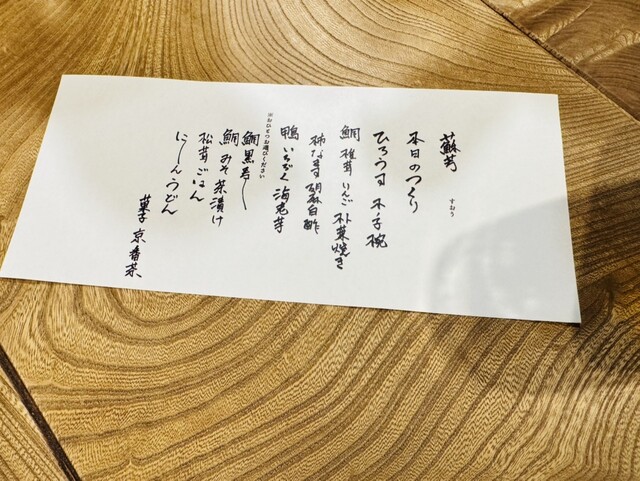 蘇芳
すおう
本日のつくり
ひろうす 木の子椀
鯛 椎茸 りんご 朴葉焼き
柿なます 胡麻白酢
鴨 いちぢく 海老芋
※おひとつお選びください
鯛黒寿し
鯛みそ茶漬け
松茸ごはん
にしんうどん
菓子 京番茶